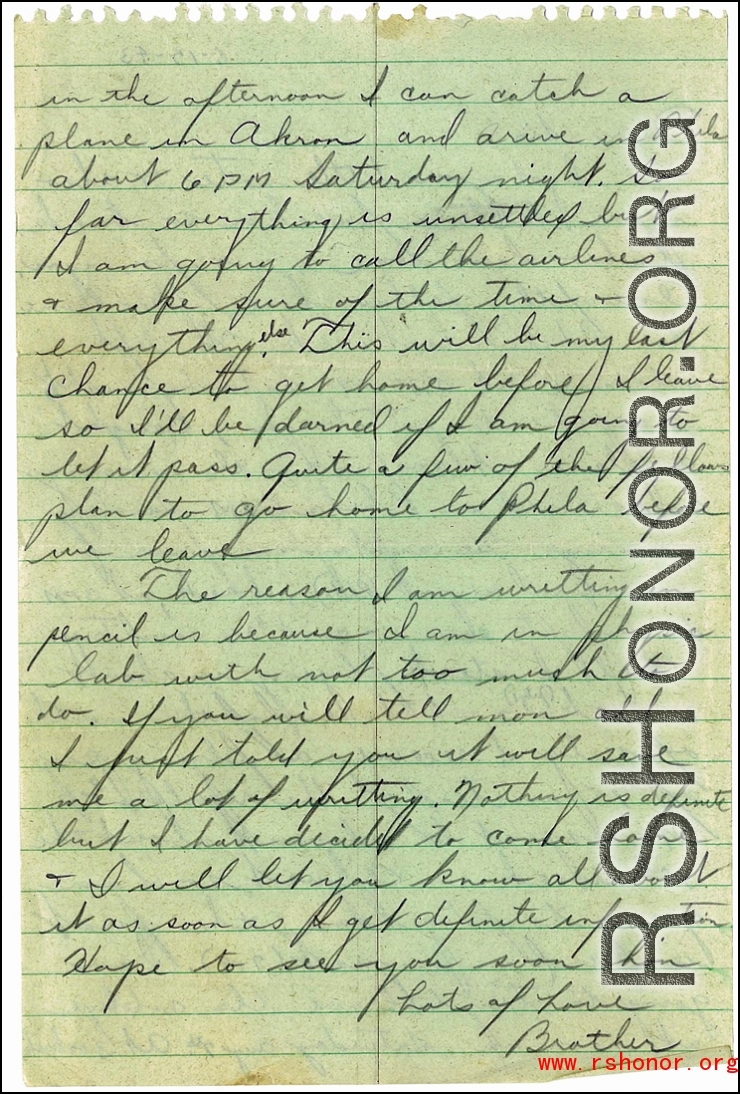 in the afternoon I can catch a
plane in Akron and arive in Phila
about 6 PM Saturday night. So
far everything is unsettled but
I am going to call the airlines
& make sure of the time &
everything else. This will be my last
chance to get home before I leave
so I'll be darned if I am going to
let it pass. Quite a few of the fellows
plan to go home to Phila before
we leave
The reason I am writting
pencil is because I am in
lab with not too much to
do. If you will tell mom all
I just told you it will save
me a lot of writting. Nothing is definite
but I have decided to come
& I will let you know all about
it as soon as I get definite information
Hope to see you soon hon
Lots of Love
Brother
RSHONOR.ORG
www.rshonor.org